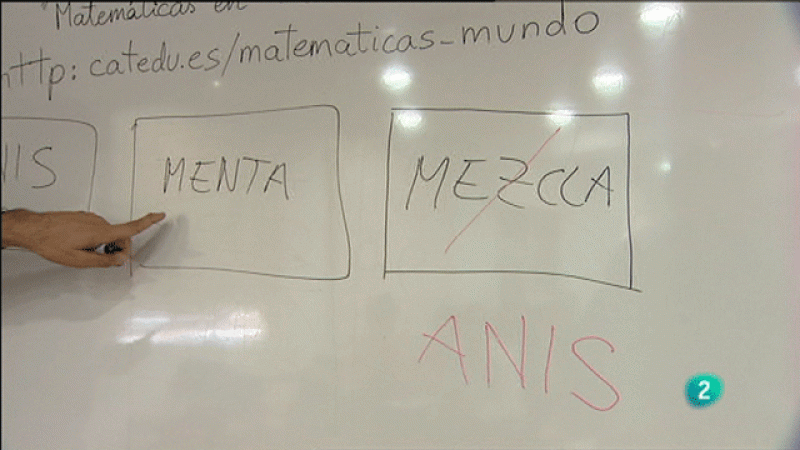 "Matemáticas en
http: catedu.es/matematicas_mundo
NIS
MENTA
MEZCLA
ANIS
2